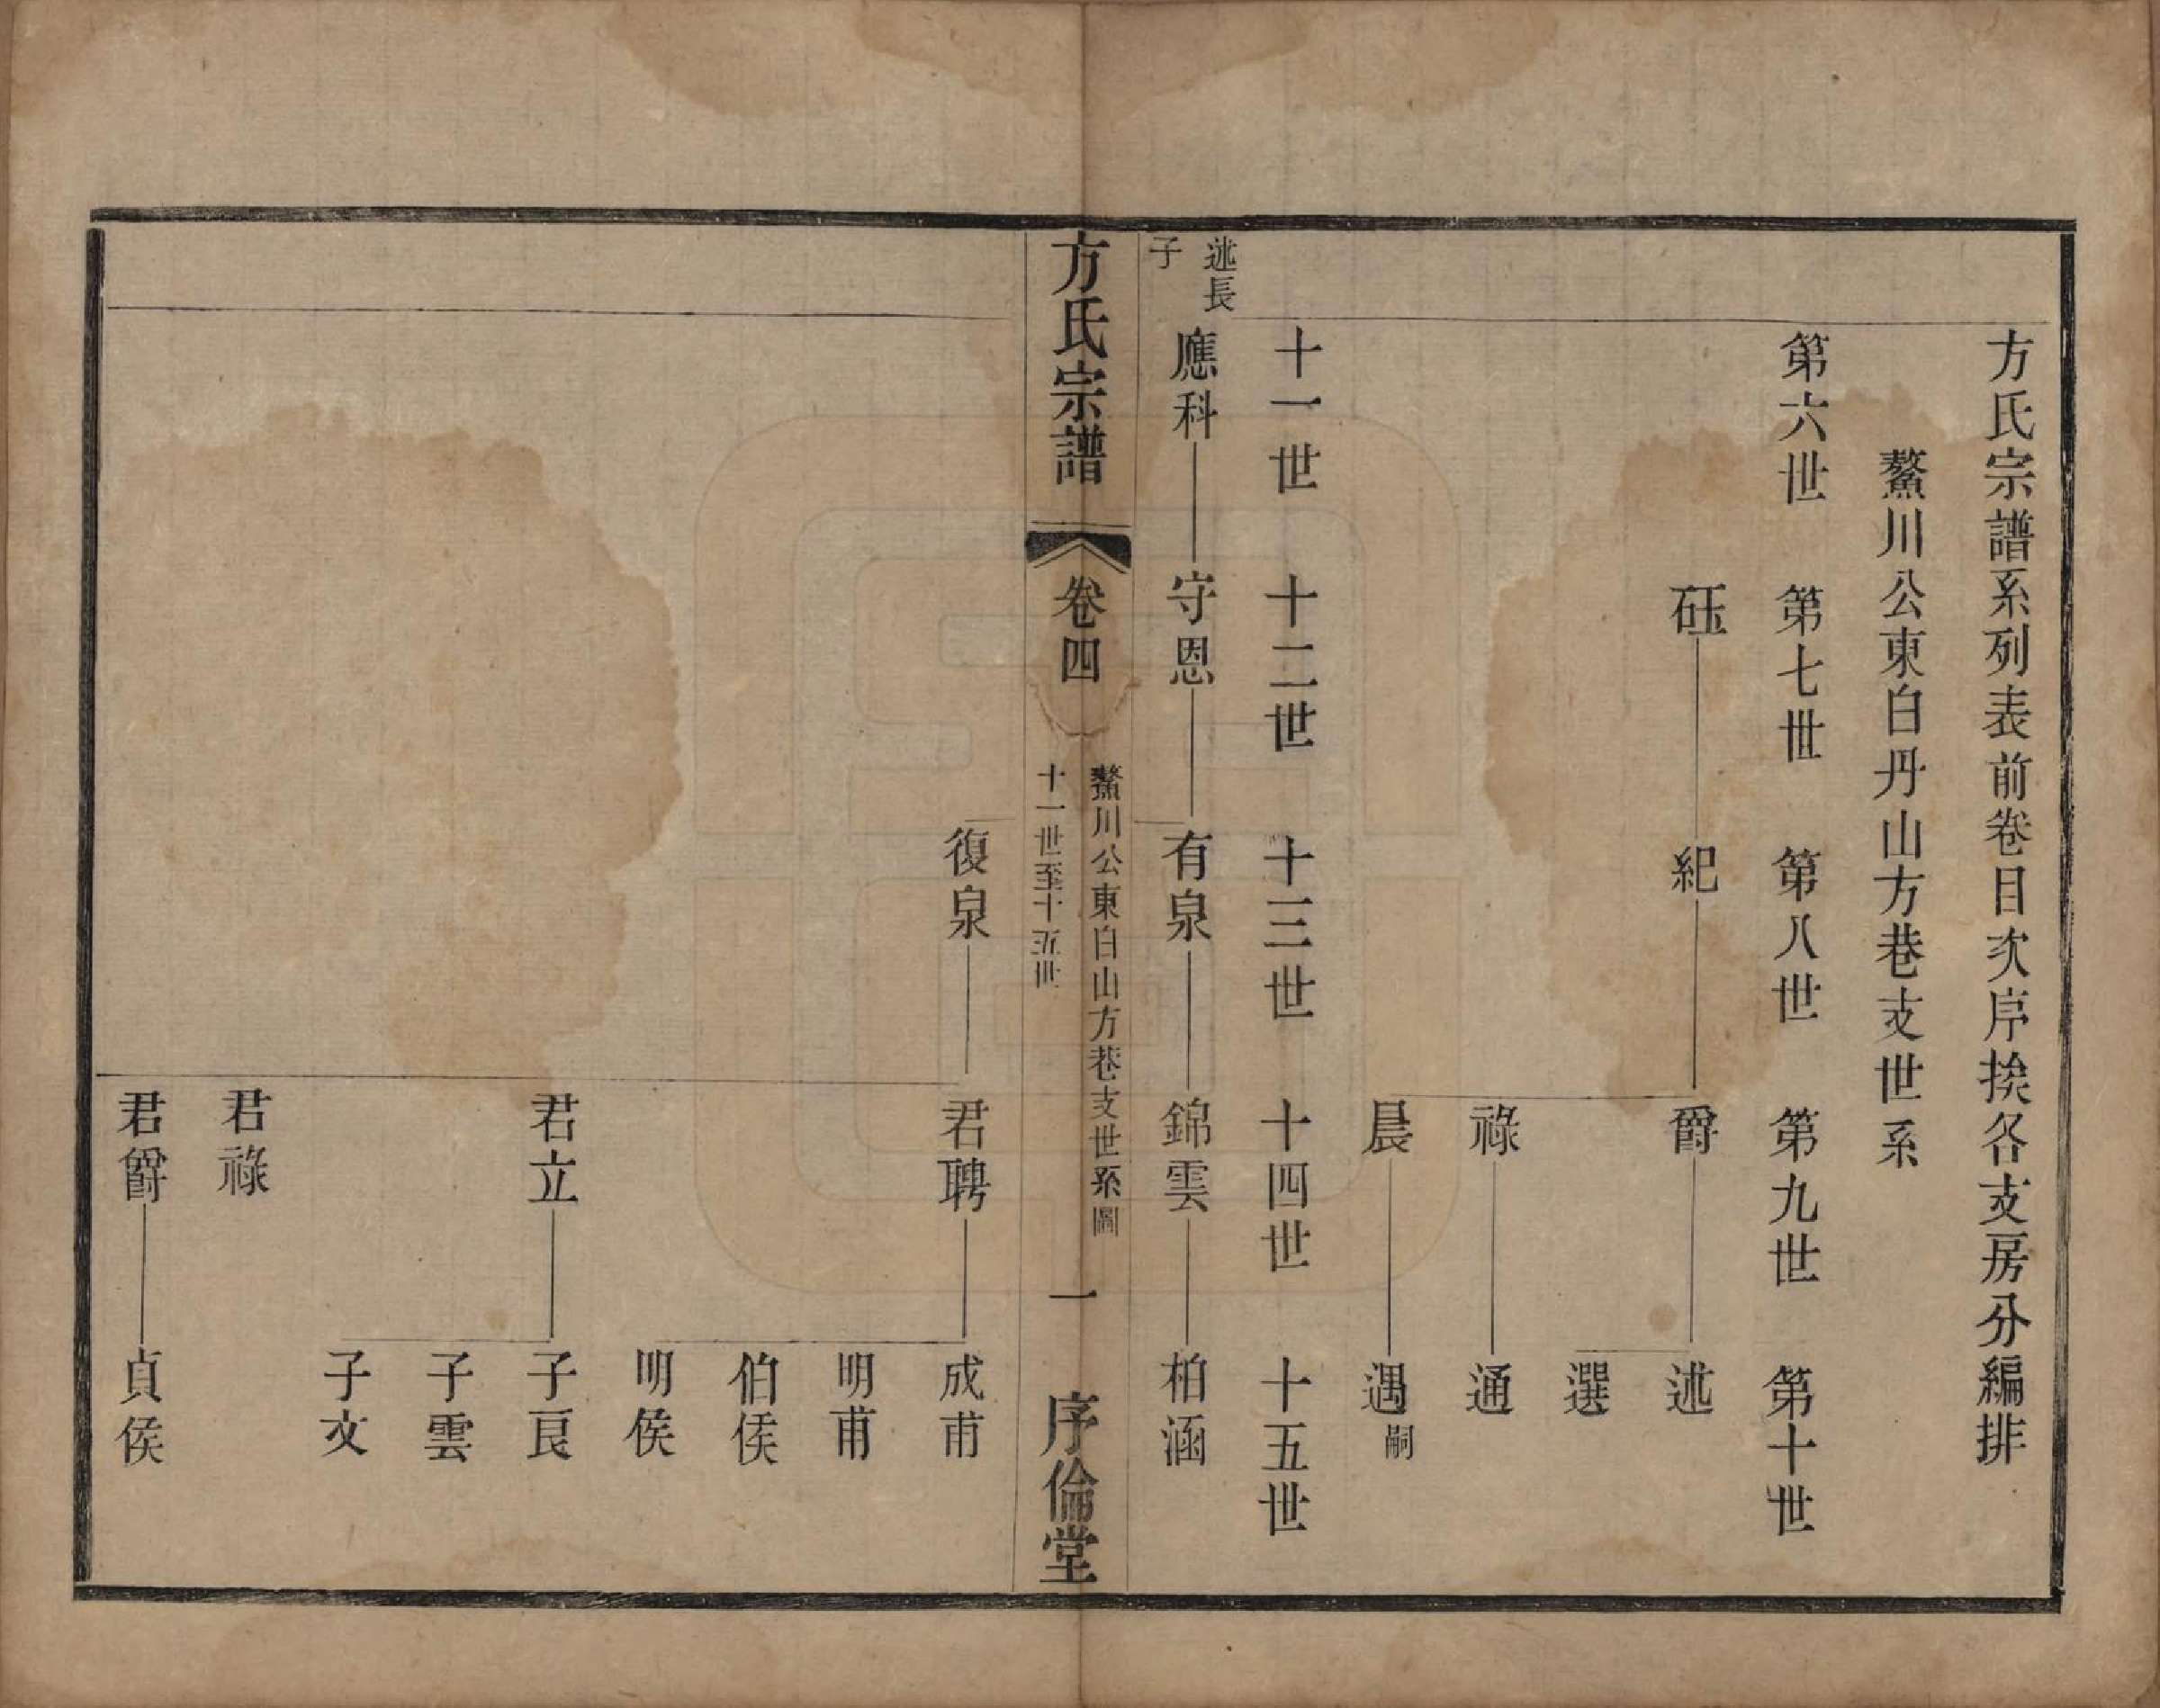 方氏宗譜系列表前卷目次序挨各支房分編排
鰲川公東白丹山方巷支世系
第六世 第七世 第八世 第九世 第十世
砡 紀 爵 述
選
祿 通
晨 遇嗣
十一世 十二世 十三世 十四世 十五世
述長
子
應科 守恩 有泉 錦雲 柏涵
方氏宗譜 卷四
鰲川公東白山方巷支世系圖
十一世至十五世
一 序倫堂
復泉 君聘 成甫
明甫
伯侯
明侯
君立 子良
子雲
子文
君祿
君爵 貞侯